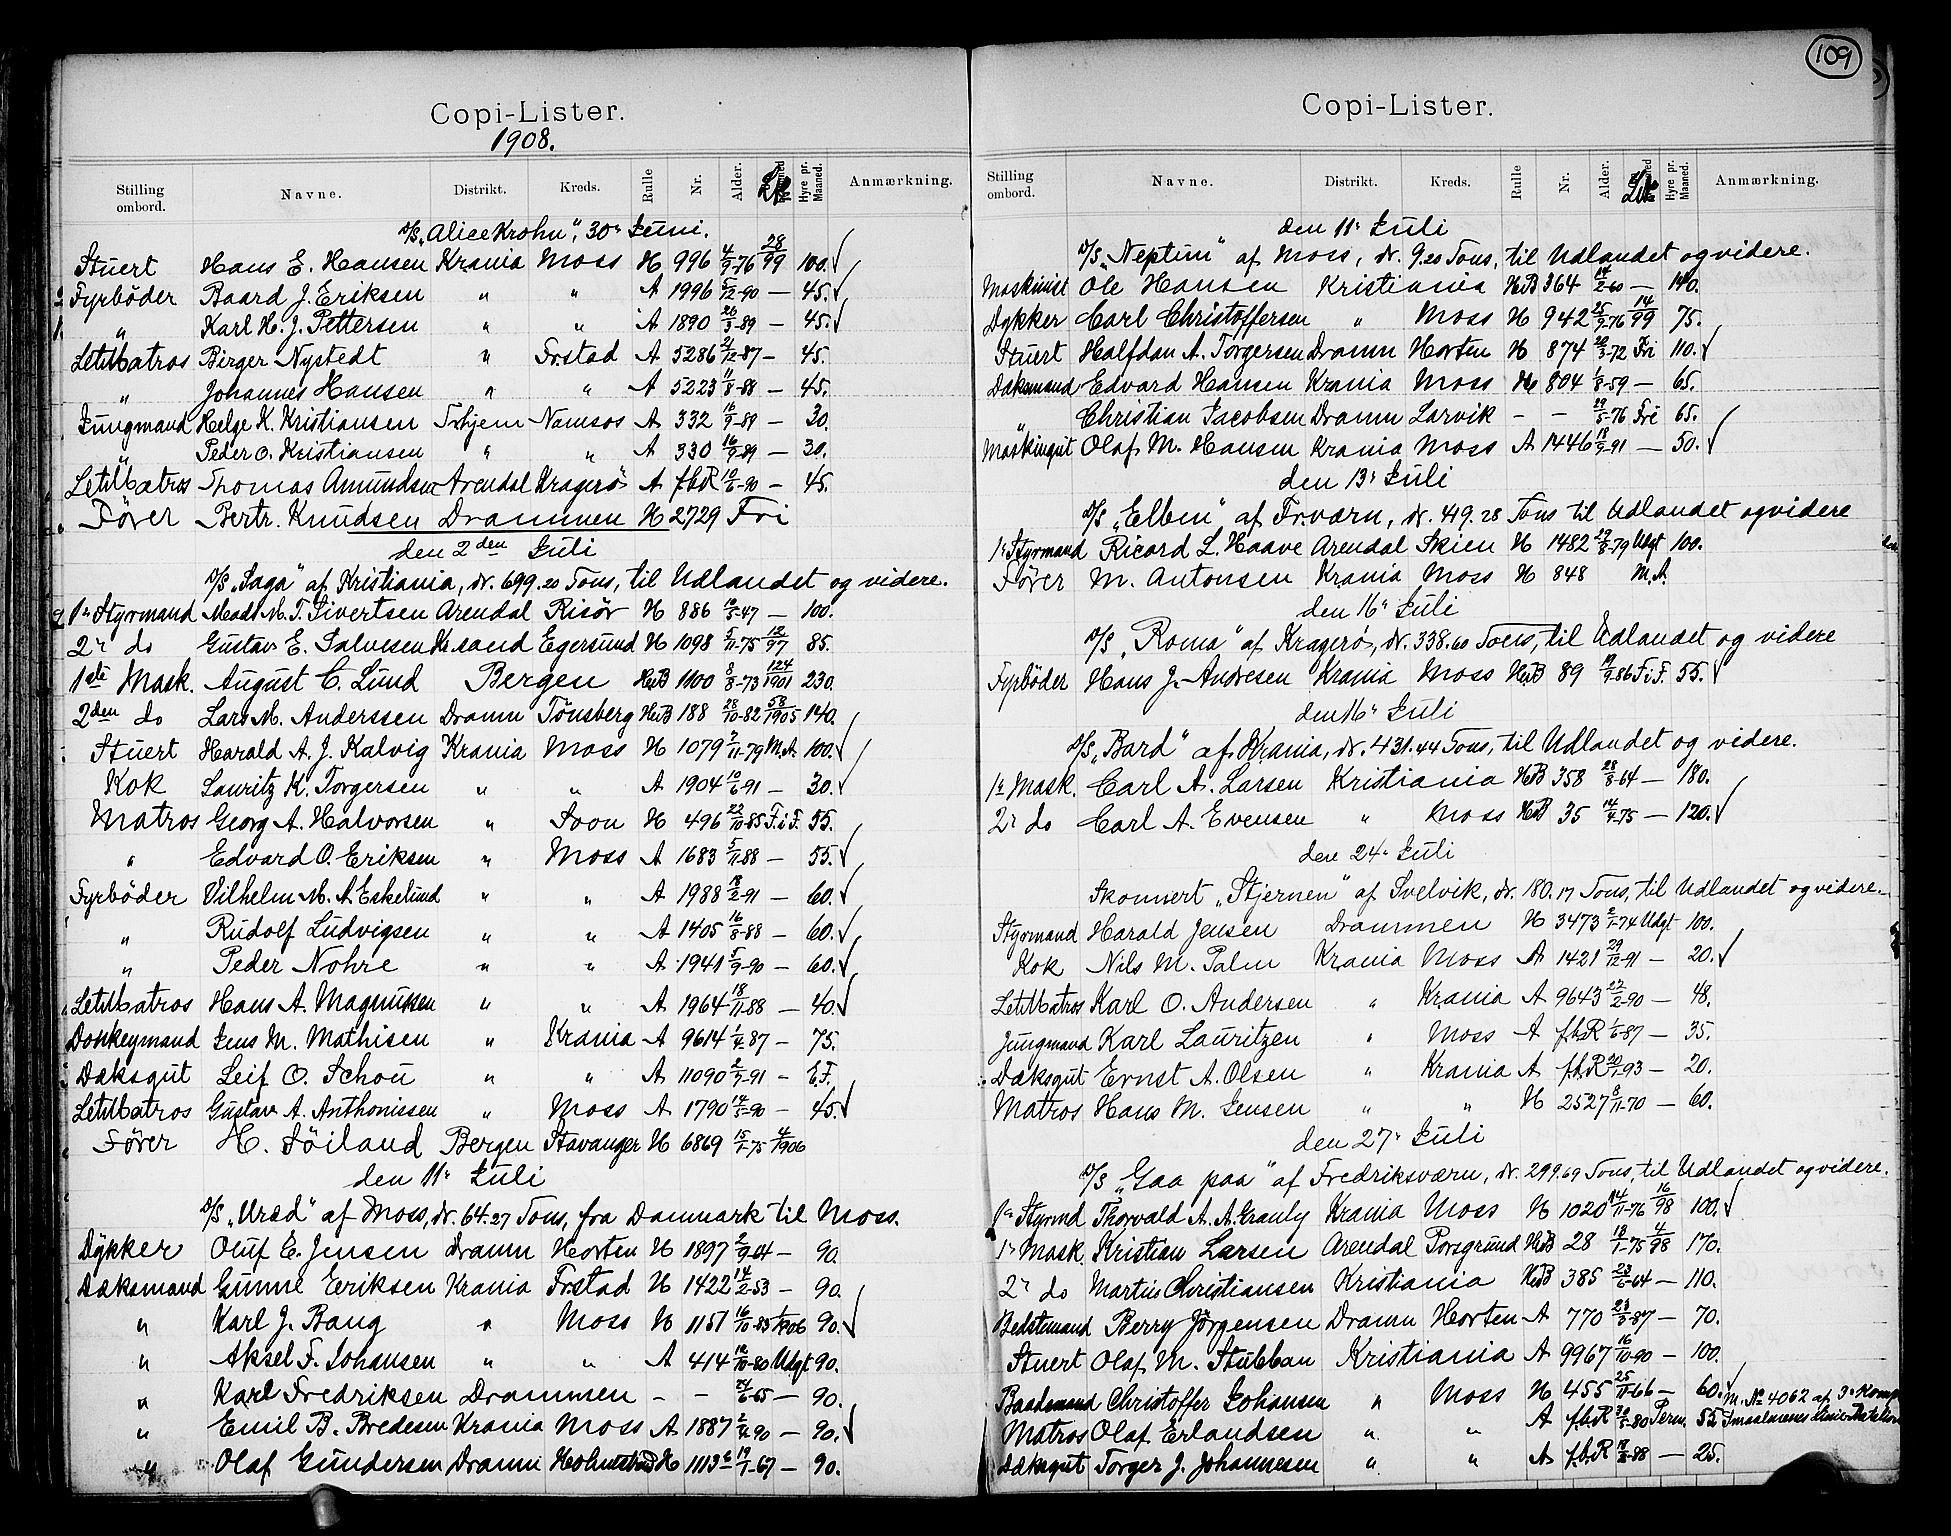 Copi-Lister.
1908.
Stilling ombord. Navne. Distrikt. Kreds. Rulle Nr. Alder. Hyre pr. Maaned. Anmærkning.
D/S „Alice Krohn", 30' Juni.
Stuert Hans E. Hansen Krania Moss H 996 4/9-76 28/99 100.
Fyrbøder Baard J. Eriksen " " A 1996 5/12-90 — 45.
" Karl H. J. Pettersen " " A 1890 20/3-89 — 45.
LetMatros Birger Nystedt " Frstad A 5286 21/12-87 — 45.
" Johannes Hansen " " A 5223 11/8-88 — 45.
Jungmand Helge K. Kristiansen Trhjem Namsos A 332 16/9-89 — 30.
" Peder O. Kristiansen " " A 330 16/9-89 — 30.
LetMatros Thomas Amundsen Arendal Kragerø A f.b.R 10/6-90 — 45.
Fører Bertr. Knudsen Drammen H 2729 Fri
den 2den Juli
D/S „Saga" af Kristiania, dr. 699.20 Tons, til Udlandet og videre.
1' Styrmand Mads M. T. Sivertsen Arendal Risör H 886 10/5-47 — 100.
2' do Gustav E. Salvesen Kr.sand Egersund H 1098 5/11-75 12/97 85.
1ste Mask. August C. Lund Bergen HaB 1100 8/8-73 124/1901 230.
2den do Lars M. Anderssen Dramn Tønsberg HaB 188 28/10-82 58/1905 140.
Stuert Harald A. J. Kalvig Krania Moss H 1079 9/11-79 M.A. 100.
Kok Lauritz K. Torgersen " " A 1904 10/6-91 — 30.
Matros Georg A. Halvorsen " Soon H 496 22/10-85 F.i F. 55.
" Edvard O. Eriksen " Moss A 1683 5/11-88 — 55.
Fyrbøder Vilhelm M. A Eskelund " " A 1988 18/2-91 — 60.
" Rudolf Ludvigsen " " A 1405 16/8-88 — 60.
" Peder Nohre " " A 1941 3/9-90 — 60.
LetMatros Hans A. Magnussen " " A 1964 18/11-88 — 40.
Donkeymand Jens M. Mathisen " Krania A 9614 1/4-87 — 75.
Dæksgut Leif O. Schou " " A 11090 2/7-91 — E.F.
LetMatros Gustav A. Anthonissen " Moss A 1790 14/5-90 — 45.
Fører H.Föiland Bergen Stavanger H 6869 15/1-75 4/1906
den 11' Juli
D/S „Uræd" af Moss, dr. 64.27 Tons, fra Danmark til Moss.
Dykker Oluf E. Jensen Dramn Horten H 1897 2/9-64 — 90.
Dæksmand Gunne Eeriksen Krania Frstad H 1422 14/2-53 — 90.
" Karl J. Bang " Moss H 1151 16/10-85 90.
" Aksel F. Johansen " " A 414 12/10-80 Udgt 90.
" Karl Fredriksen Drammen - - 24/6-65 — 90.
" Emil B. Bredesen Krania Moss A 1887 2/4-90 — 90.
" Olaf Gundersen Dramn Holmestrand H 1113 19/1-67 — 90.
109
Copi-Lister.
Stilling ombord. Navne. Distrikt. Kreds. Rulle Nr. Alder. Hyre pr. Maaned. Anmærkning.
den 11' Juli
D/S „Neptun" af Moss, dr. 9.20 Tons, til Udlandet og videre.
Maskinist Ole Hansen Kristiania HaB 364 14/2-60 — 140.
Dykker Carl Christoffersen " Moss H 942 25/9-76 14/99 75.
Stuert Halfdan A. Torgersen Dramn Horten H 874 20/3-72 Fri 110.
Dæksmand Edvard Hansen Krania Moss H 804 1/8-59 — 65.
" Christian Jacobsen Dramn Larvik - - 29/5-76 Fri 65.
Maskingut Olaf M. Hansen Krania Moss A 1446 18/9-91 — 50.
den 13' Juli
D/S „Elben" af Fr.værn, dr. 419.28 Tons til Udlandet og videre
1' Styrmand Ricard L. Haave Arendal Skien H 1482 29/8-79 Udgt 100.
Fører M. Antonsen Krania Moss H 848 M.A.
den 16' Juli
D/S „Roma" af Kragerø, dr. 338.60 Tons, til Udlandet og videre
Fyrbøder Hans J. Andresen Krania Moss HaB 89 19/9-86 F.i F. 55.
den 16' Juli
D/S „Bard" af Krania, dr. 431.44 Tons, til Udlandet og videre.
1' Mask. Carl A. Larsen Kristiania HaB 358 28/8-64 — 180.
2' do Carl A. Evensen " Moss HaB 35 14/4-75 — 120.
den 24' Juli
Skonnert „Stjernen" af Svelvik, dr. 180.17 Tons, til Udlandet og videre.
Styrmand Harald Jensen Drammen H 3473 2/1-74 Udgt 100.
Kok Nils M. Palm Krania Moss A 1421 29/12-91 — 20.
LetMatros Karl O. Andersen " Krania A 9643 22/2-90 — 48.
Jungmand Karl Lauritzen " Moss A f.b.R 1/6-87 — 35.
Dæksgut Ernst A. Olsen " Krania A f.b.R 20/1-93 — 20.
Matros Hans M. Jensen " " H 2527 8/11-70 — 60.
den 27' Juli
D/S „Gaa paa" af Fredriksværn, dr. 299.69 Tons, til Udlandet og videre.
1' Styrmd Thorvald A. A. Granly Krania Moss H 1020 14/11-76 16/98 100.
1' Mask. Kristian Larsen Arendal Porsgrund HaB 28 18/1-75 4/98 170.
2' do Martin Christiansen Kristiania HaB 385 23/6-64 — 110.
Bedstemand Berry Jörgensen Dramn Horten A 770 23/3-87 — 70.
Stuert Olaf M. Stubban Kristiania A 9967 16/10-90 — 100.
Baadsmand Christoffer Johansen " Moss H 455 25/11-66 — 60. M. No 4062 af 3' Komp
Matros Olaf Erlandsen " " A f.b.R 30/5-80 Perm. 55 Smaalenenes Linie Batalion
Dæksgut Torger J. Johannesen " " A f.b.R 18/8-88 — 25.